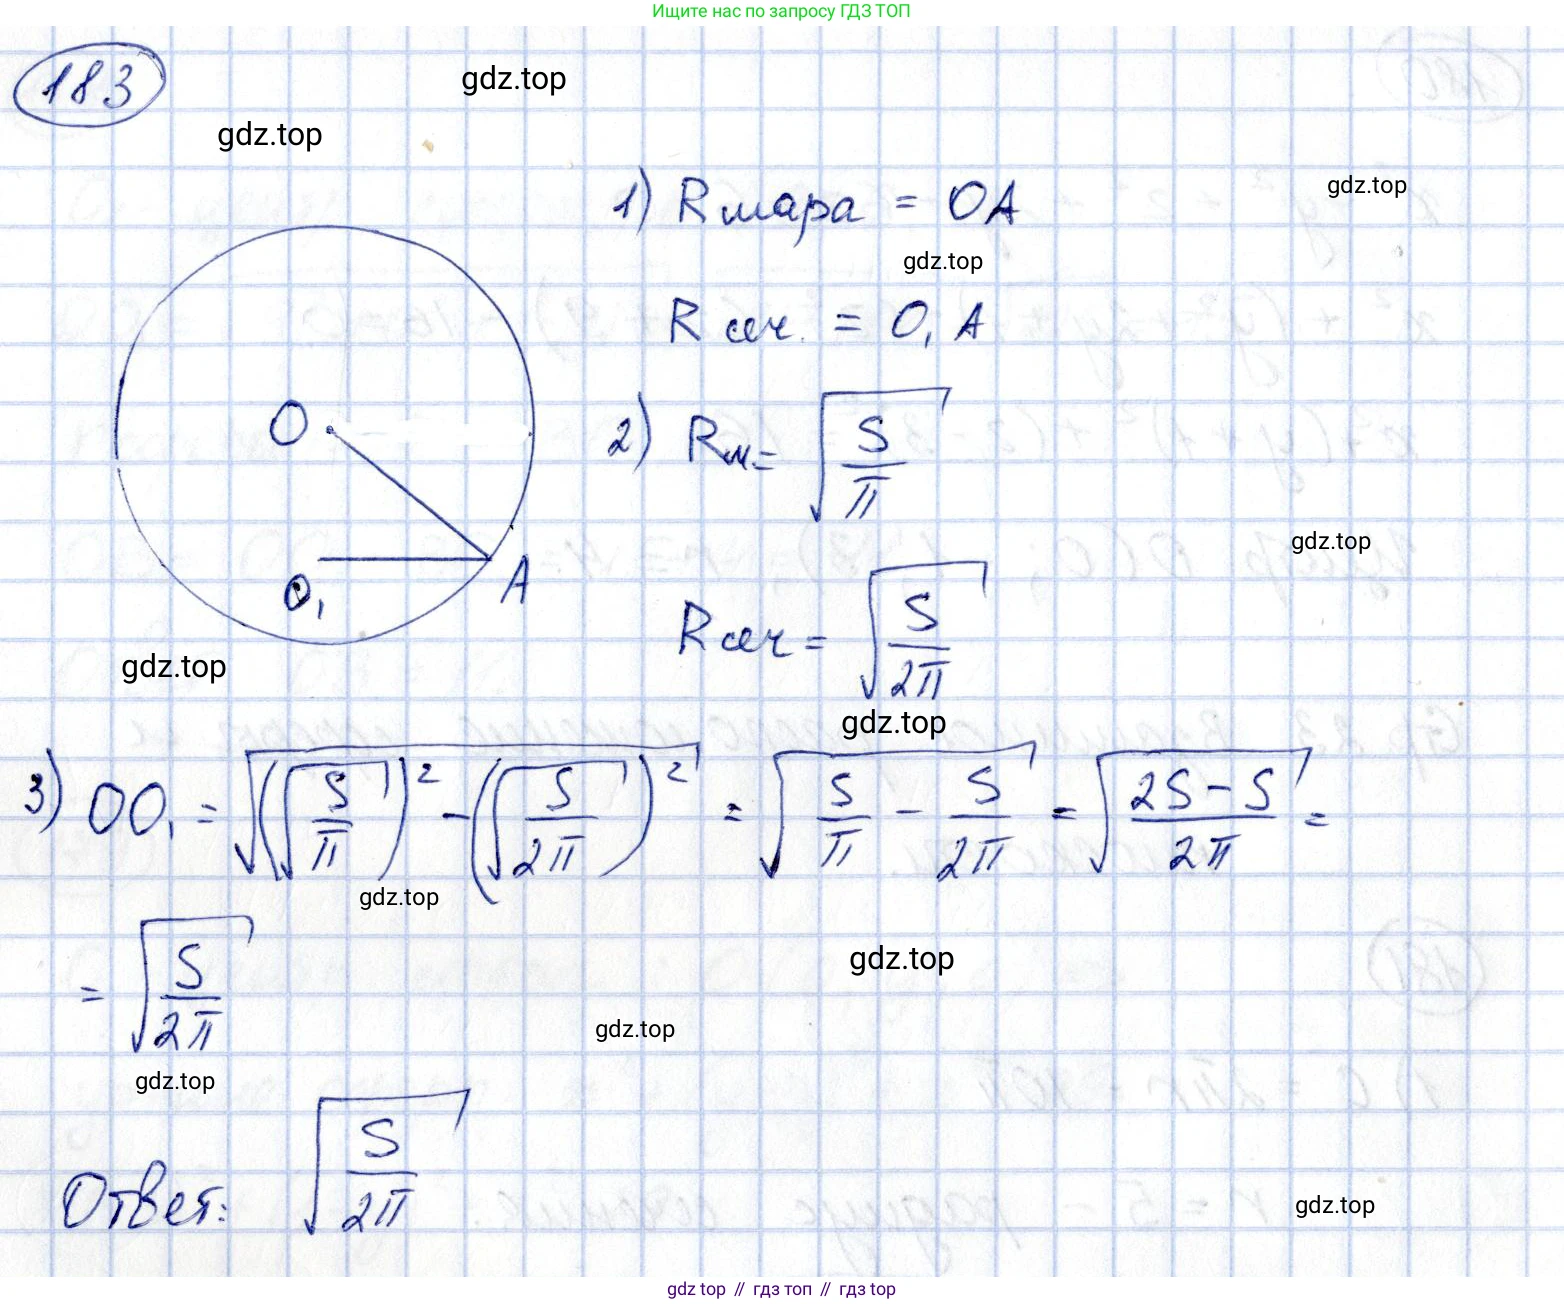 Ищите нас по запросу ГДЗ ТОП
183
gdz.top
gdz.top
1) R шара = OA
gdz.top
gdz.top
R сеч. = O₁A
O
2) Rш = √(S/π)
gdz.top
O₁
A
Rсеч = √(S/2π)
gdz.top
gdz.top
3) OO₁ = √((√(S/π))² - (√(S/2π))²) = √(S/π - S/2π) = √((2S - S)/2π) =
gdz.top
= √(S/2π)
gdz.top
gdz.top
gdz.top
Ответ: √(S/2π)
gdz.top
gdz top // гдз топ // гдз top